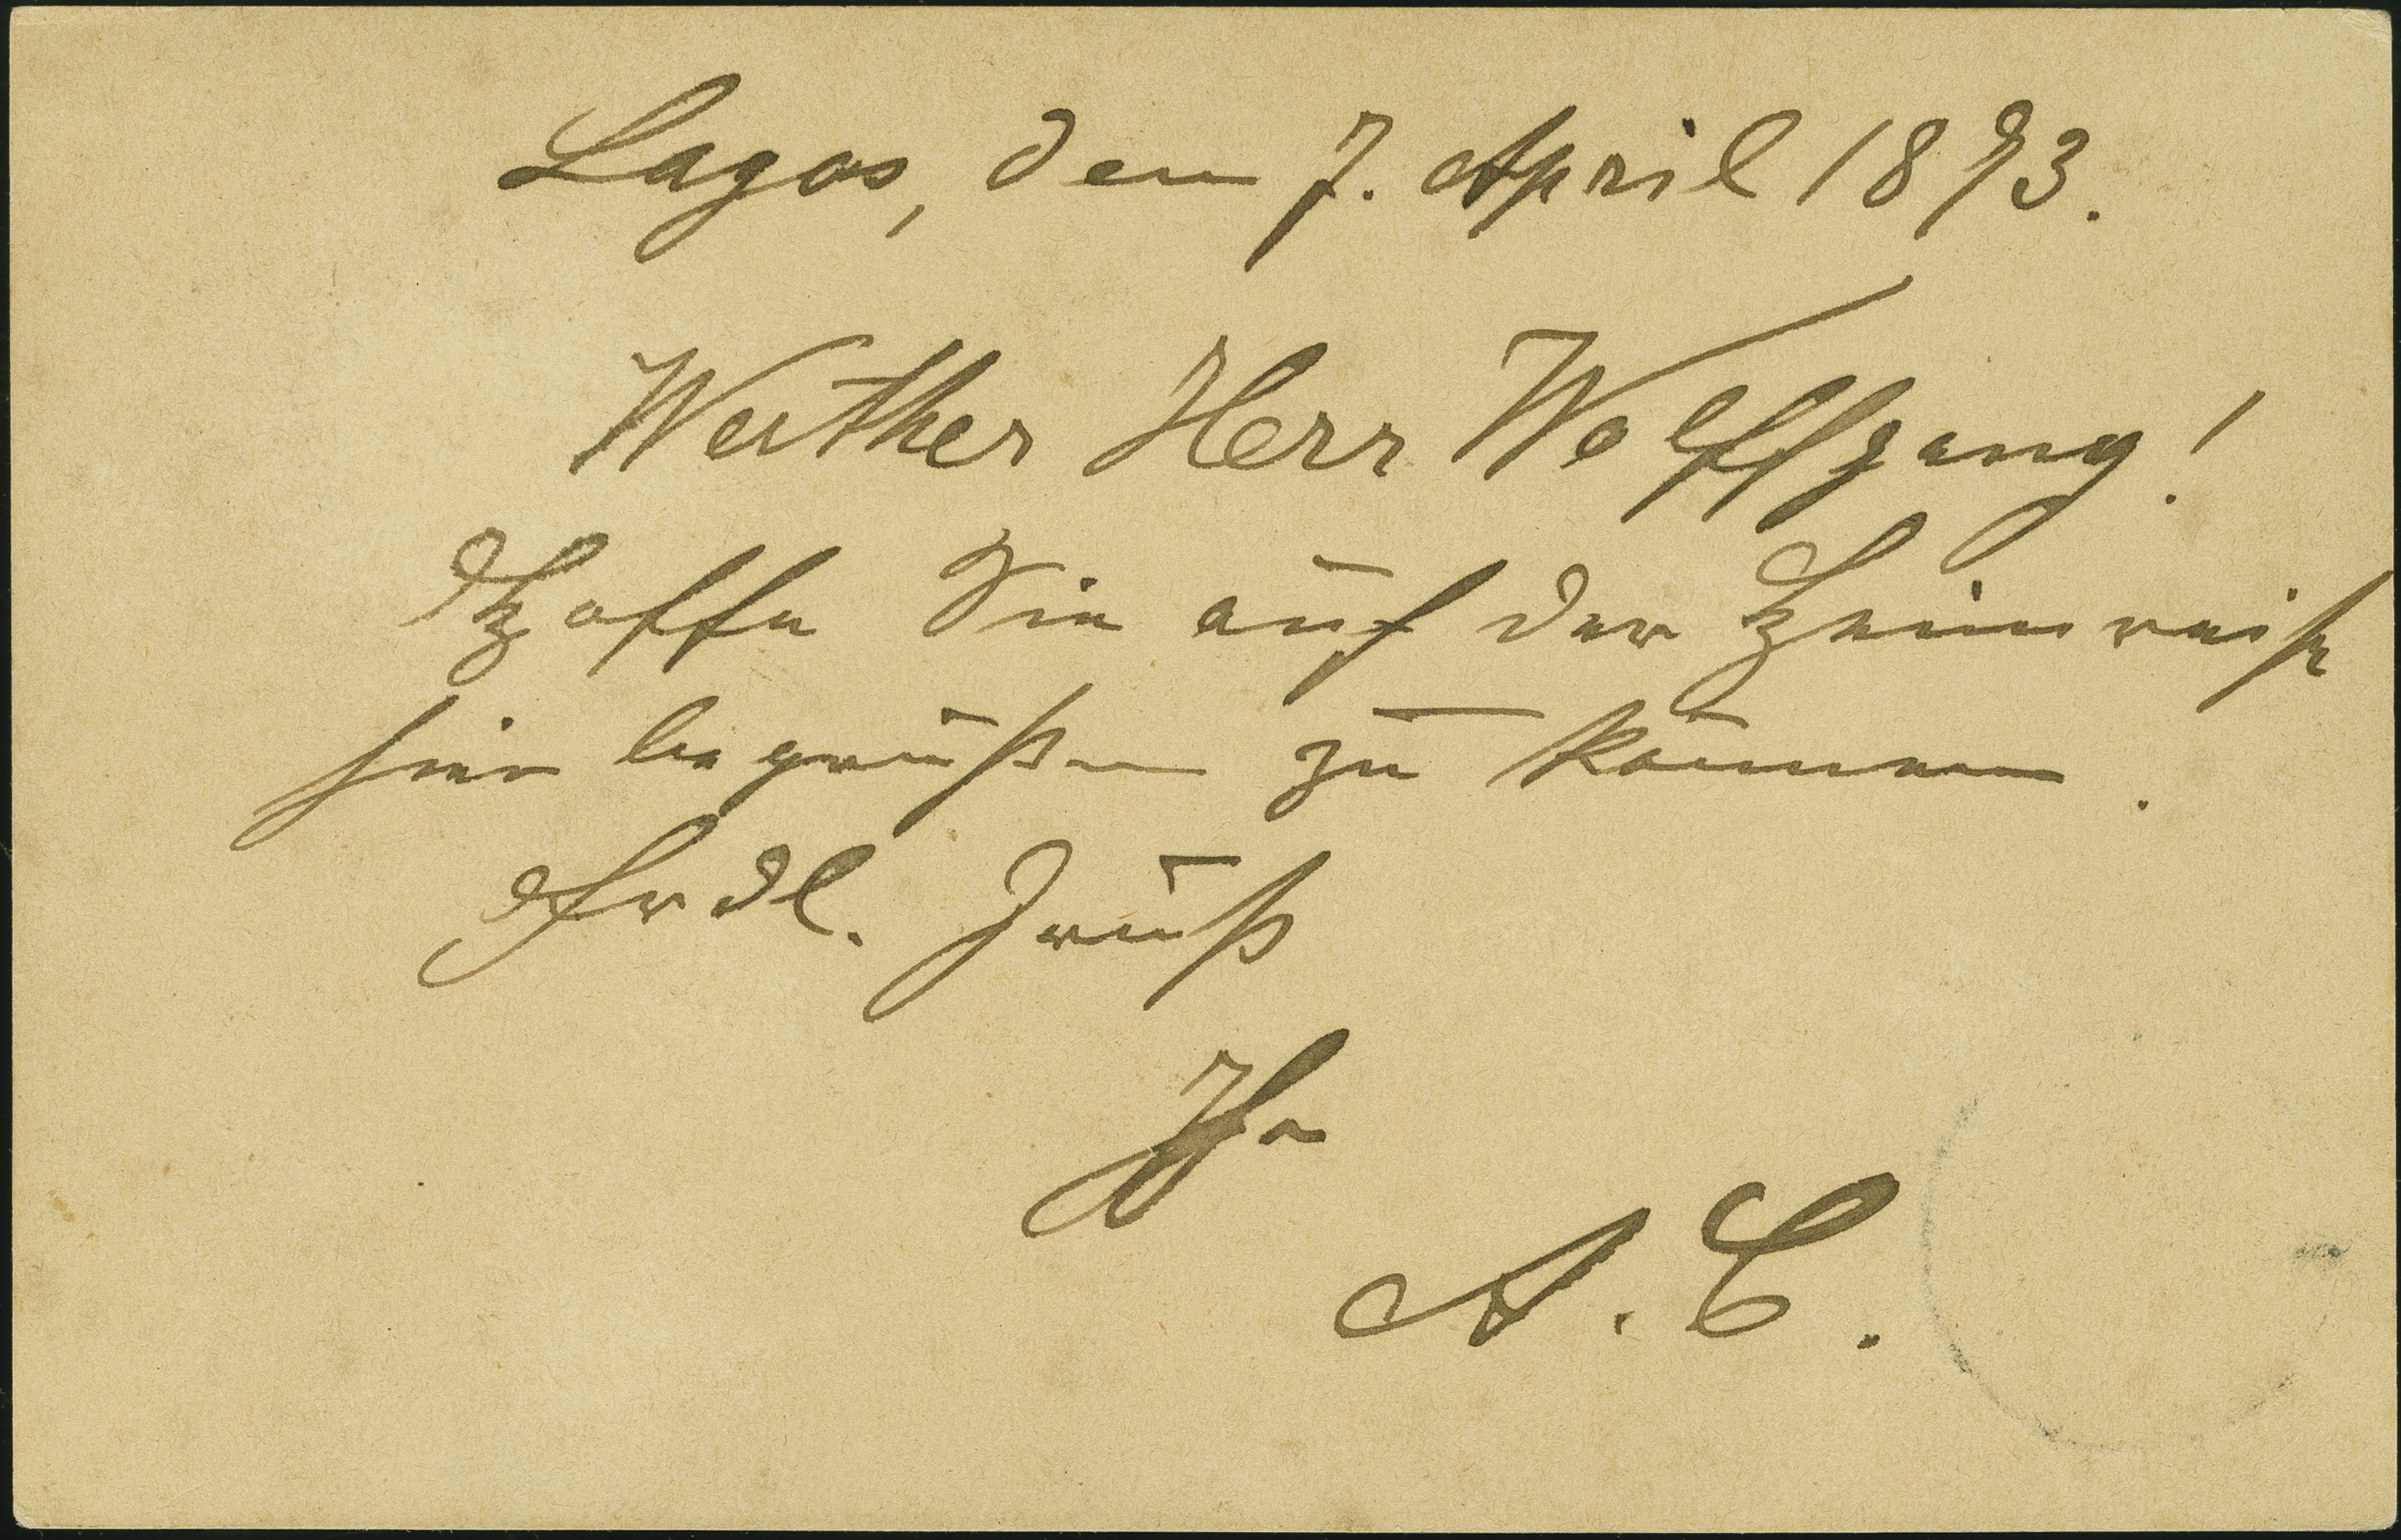 Lagos, den 7. April 1893.
Werther Herr Wolffgang!
Hoffe Sie auf der Heimreise
hier begrüßen zu können.
Frdl. Gruß
Ihr
A. C.